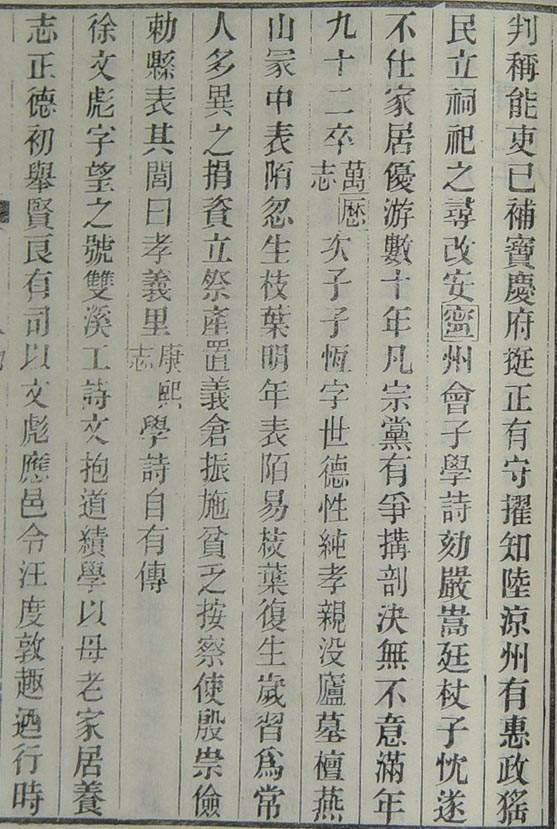 判稱能吏已補寶慶府挺正有守擢知陸涼州有惠政猺
民立祠祀之尋改安寍州會子學詩劾嚴嵩廷杖子忱遂
不仕家居優游數十年凡宗黨有爭搆剖決無不意滿年
九十二卒萬厯志次子子恆字世德性純孝親没廬墓檀燕
山冢中表陌忽生枝葉明年表陌易枝葉復生歲習爲常
人多異之捐資立祭產置義倉振施貧乏按察使殷崇儉
勅縣表其閭曰孝義里康熙志學詩自有傳
徐文彪字望之號雙溪工詩文抱道績學以母老家居養
志正德初舉賢良有司以文彪應邑令汪度敦趣迺行時